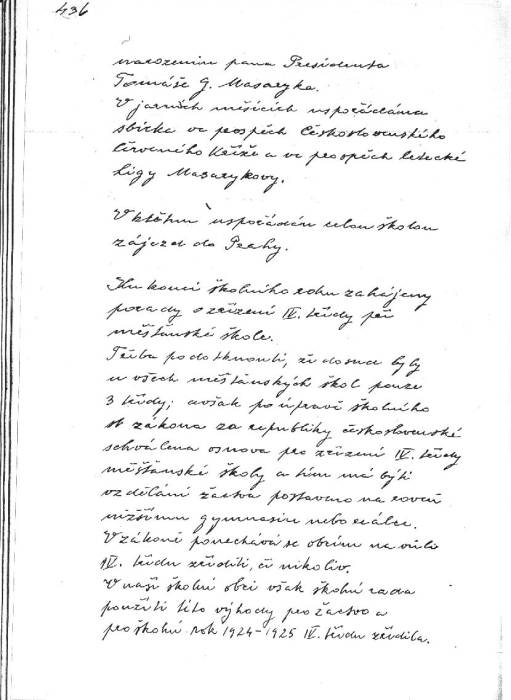 436
narozenin pana Presidenta
Tomáše G. Masaryka.
V jarních měsících uspořádána
sbírka ve prospěch Československého
červeného kříže a ve prospěch letecké
ligy Masarykovy.
V květnu uspořádán celou školou
zájezd do Prahy.
Ku konci školního roku zahájeny
porady o zřízení IV. třídy při
měšťanské škole.
Třeba podotknouti, že dosud byly
u všech měšťanských škol pouze
3 třídy; avšak po úpravě školního
zákona za republiky československé
schválena osnova pro zřízení IV. třídy
měšťanské školy a tím má býti
vzdělání žactva postaveno na roveň
nižšímu gymnasiu nebo reálce.
V zákoně ponechává se obcím na vůli
IV. třídu zříditi, či nikoliv.
V naší školní obci však školní rada
použití této výhody pro žactvo a
pro školní rok 1924-1925 IV. třídu zřídila.